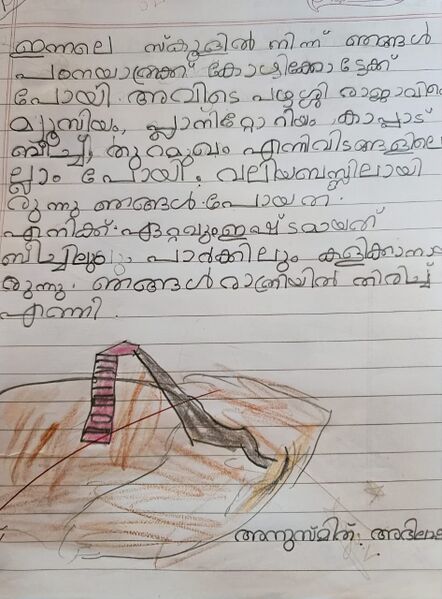 ഇന്നലെ സ്കൂളിൽ നിന്ന് ഞങ്ങൾ
പഠനയാത്രക്ക് കോഴിക്കോട്ടേക്ക്
പോയി. അവിടെ പഴശ്ശി രാജാവിന്റെ
മ്യൂസിയം, പ്ലാനിറ്റോറിയം, കാപ്പാട്
ബീച്ച്, തുറമുഖം എന്നിവിടങ്ങളിലെ
ല്ലാം പോയി. വലിയബസ്സിലായി
രുന്നു ഞങ്ങൾ പോയത്.
എനിക്ക് ഏറ്റവുംഇഷ്ടമായത്
ബീച്ചിലും പാർക്കിലും കളിക്കാനാ
രുന്നു. ഞങ്ങൾ രാത്രിയിൽ തിരിച്ച്
എത്തി.
അനുസ്മിത.